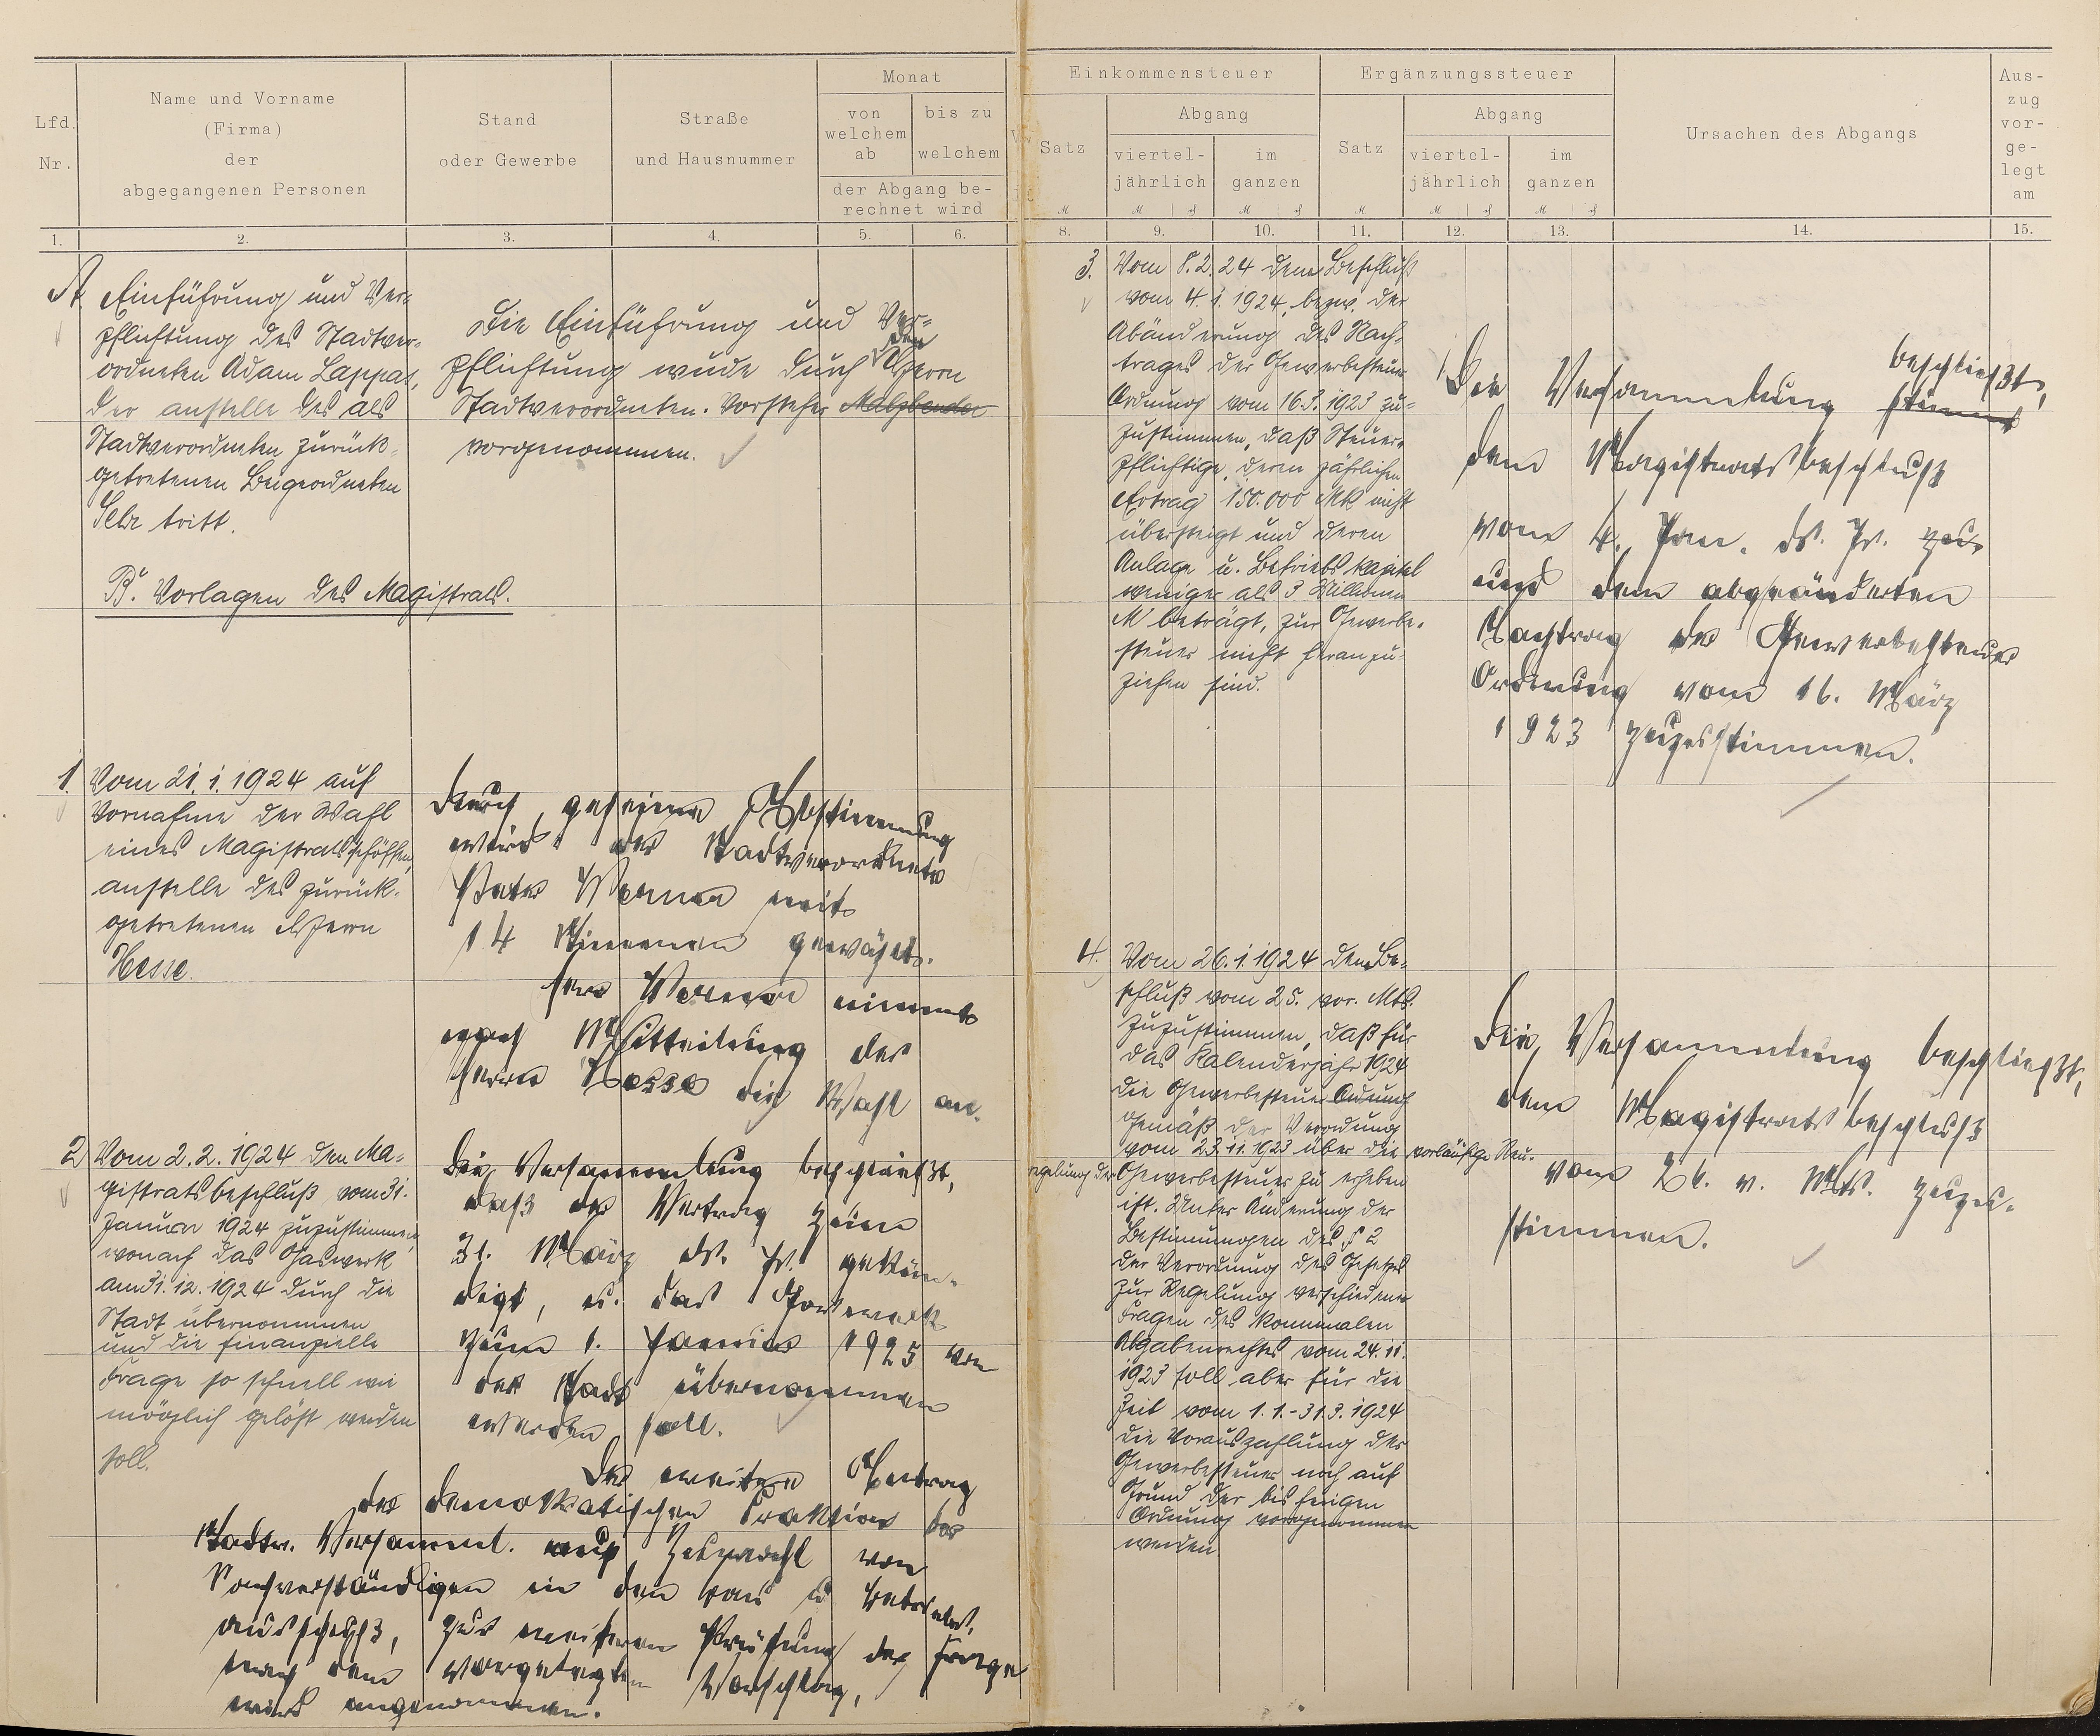 Lfd.
Nr.
Name und Vorname
(Firma)
der
abgegangenen Personen
Stand
oder Gewerbe
Straße
und Hausnummer
Monat
von
welchem
ab
bis zu
welchem
der Abgang be-
rechnet wird
1.
2.
3.
4.
5.
6.
A Einführung und Ver-
pflichtung des Stadtver-
ordneten Adam Lappas,
der anstelle des als
Stadtverordneten zurück-
getretenen Beigeordneten
tritt.
Die Einführung und Ver-
pflichtung wude durch den Herrn
Stadtverordneten-Vorsteher Malzbender
vorgenommen.
B. Vorlagen des Magistrats.
1. Vom 21.1.1924 auf
Vornahme der Wahl
eines Magistratsschöffen,
anstelle des zurück-
getretenen Herrn
Hesse.
Durch geheime Abstimmung
wird der Stadtverordnete
Peter Werner mit
14 Stimmen gewählt.
Herr Werner nimmt
nach Mitteilung des
Herrn Hesse die Wahl an.
2 Vom 2.2.1924 den Ma-
gistratsbeschluß vom 31.
Januar 1924 zuzustimmen,
wonach das Gaswerk
am 31.12.1924 durch die
Stadt übernommen
und die finanzielle
Frage so schnell wie
möglich gelöst werden
soll.
Die Versammlung beschließt,
daß der Vertrag zum
31. März ds. Js. gekün-
digt, u. das Gaswerk
zum 1. Januar 1925 von
der Stadt übernommen
werden soll.
Der weitere Antrag
der demokratischen Fraktion der
Stadtv. Versamml. auf Zuwahl von
Sachverständigen in den
ausschuß, zur weiteren Prüfung der Frage
nach dem vorgelegten Vorschlag,
wird angenommen.
Einkommensteuer
Satz
Abgang
viertel-
jährlich
im
ganzen
Ergänzungssteuer
Satz
Abgang
viertel-
jährlich
im
ganzen
Ursachen des Abgangs
Aus-
zug
vor-
ge-
legt
am
8.
9.
10.
11.
12.
13.
14.
15.
3. Vom 8.2.24 dem Beschluß
vom 4.1.1924, bezw. der
Abänderung des Nach-
trages der Gewerbesteuer
Ordnung vom 16.3.1923 zu-
zustimmen, daß Steuer-
pflichtige, deren jährlicher
Ertrag 150.000 Mk nicht
übersteigt und deren
Anlage u. Betriebskapital
weniger als 3 Millionen
M beträgt, zur Gewerbe-
steuer nicht heranzu-
ziehen sind.
Die Versammlung stimmt beschließt,
dem Magistratsbeschluß
vom 4. Jan. ds. Js. zu
und dem abgeänderten
Nachtrag der Gewerbesteuer
Ordnung vom 16. März
1923 zuzustimmen.
4. Vom 26.1.1924 dem Be-
schluß vom 25. vor. Mts.
zuzustimmen, daß für
das Kalenderjahr 1924
die Gewerbesteuer Ordnung
gemäß der Verordnung
vom 23.11.1923 über die vorläufige Neu-
regelung der Gewerbesteuer zu erheben
ist. Unter Änderung der
Bestimmungen des § 2
der Verordnung des Gesetzes
zur Regelung verschiedener
Fragen des kommunalen
Abgabenrechtes vom 24.11.
1923 soll aber für die
Zeit vom 1.1.-31.3.1924
die Vorauszahlung der
Gewerbesteuer noch auf
Grund der bisherigen
Ordnung vorgenommen
werden.
Die Versammlung beschließt,
dem Magistratsbeschluß
vom 26. v. Mts. zuzu-
stimmen.